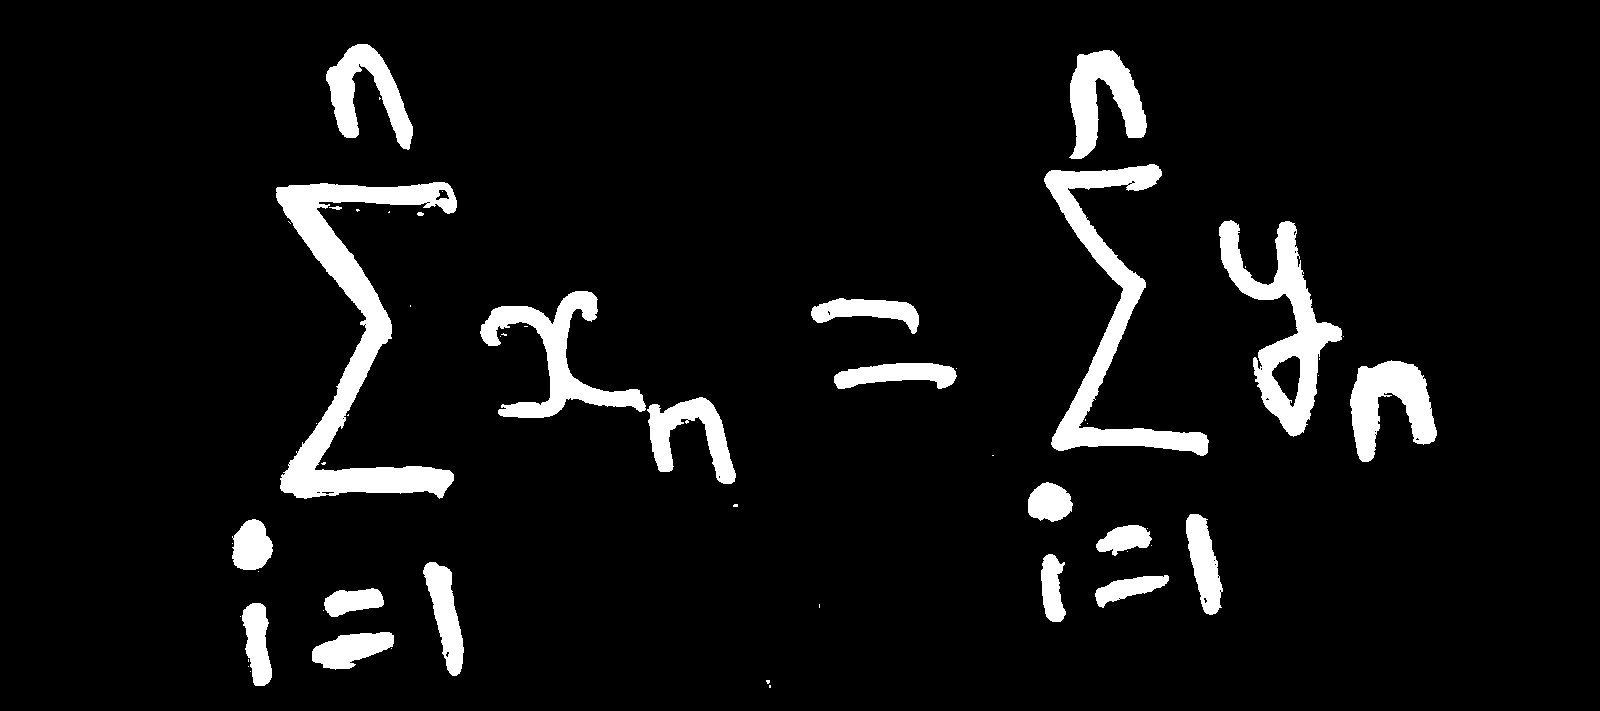 \sum_{i=1}^{n} x_n = \sum_{i=1}^{n} y_n